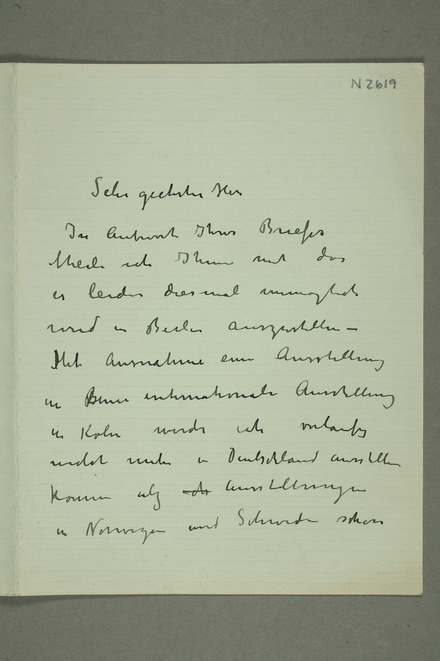 N 2619
Sehr geehrter Herr
In Antwort Ihres Briefes
theile ich Ihnen mit das
es leider diesmal unmöglich
wird in Berlin auszustellen –
Mit Ausnahme eine Ausstellung
in internationale Ausstellung
in Köln werde ich vorlaufig
nicht mehr in Deutschland ausstellen
können Ausstellungen
in Norwegen und Schweden schon